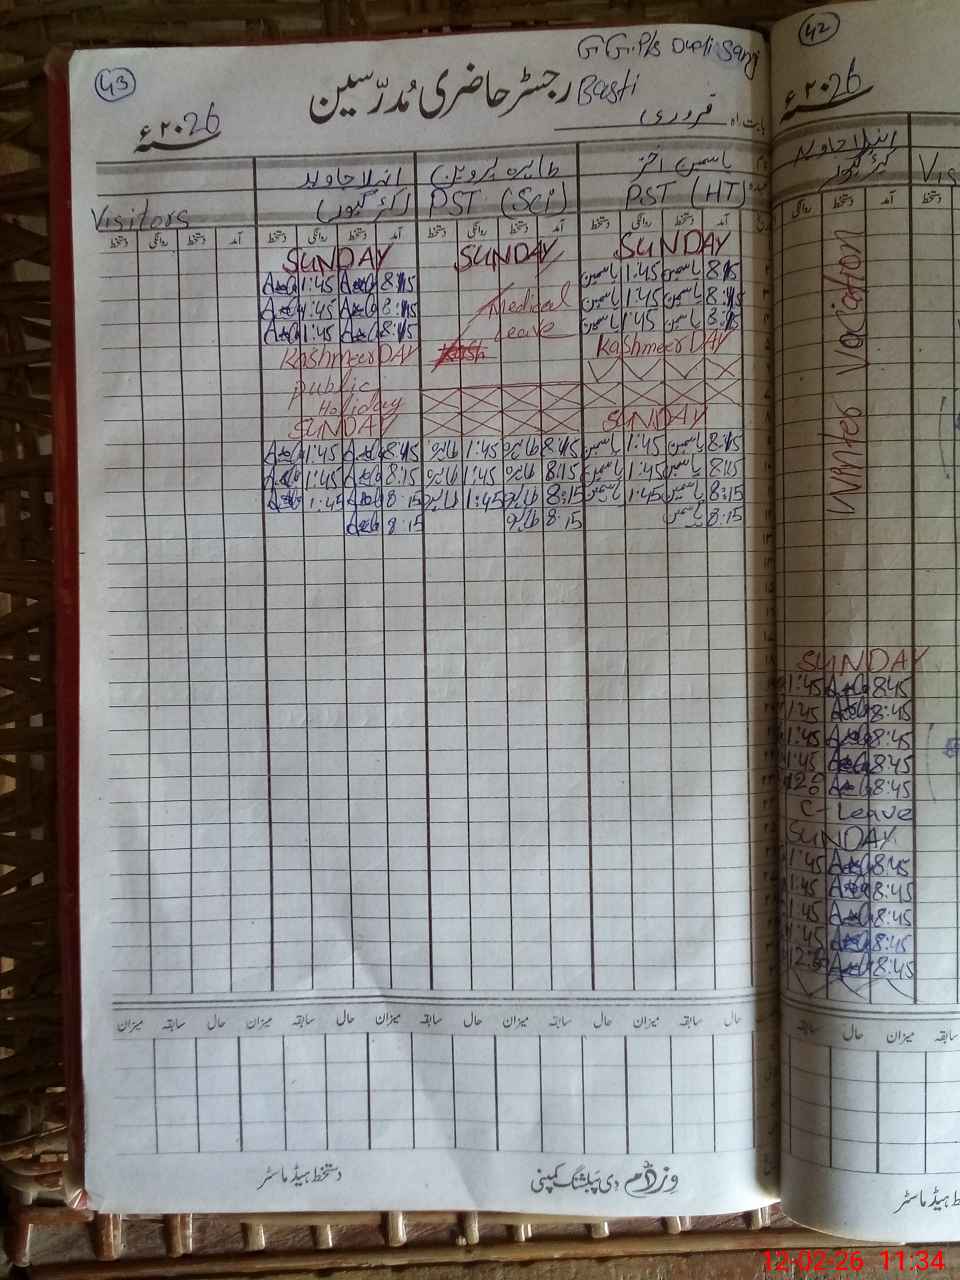 43
G G.P/s Dupti Sanj
Basti
رجسٹر حاضری مُدرّسین
۲۰26ء
بابت ماہ فروری
یاسمین اختر
طاہرہ پروین
PST (HT)
PST (Sci)
Visitors
آمد دستخط روانگی دستخط آمد دستخط روانگی دستخط آمد دستخط روانگی دستخط آمد دستخط روانگی دستخط
SUNDAY SUNDAY SUNDAY
1:45 8:15 یاسمین 1:45 یاسمین 8:15
1:45 8:15 Medical یاسمین 1:45 یاسمین 8:15
1:45 8:15 Leave یاسمین 1:45 یاسمین 8:15
Kashmeer DAY Kashmeer DAY
public
Holiday
SUNDAY SUNDAY
1:45 8:15 طاہرہ 1:45 طاہرہ 8:15 یاسمین 1:45 یاسمین 8:15
1:45 8:15 طاہرہ 1:45 طاہرہ 8:15 یاسمین 1:45 یاسمین 8:15
1:45 8:15 طاہرہ 1:45 طاہرہ 8:15 یاسمین 1:45 یاسمین 8:15
8:15 طاہرہ 8:15 یاسمین 8:15
حال سابقہ میزان حال سابقہ میزان حال سابقہ میزان حال سابقہ میزان حال سابقہ میزان
دستخط ہیڈ ماسٹر
وزڈم دی پبلشنگ کمپنی
42
۲۰26ء
Vis
Winter Vocation
SUNDAY
1:45 8:45
1:45 8:45
1:45 8:45
1:45 8:45
8:45
C-Leave
SUNDAY
1:45 8:45
1:45 8:45
1:45 8:45
1:45 8:45
8:45
سابقہ حال میزان سابقہ
دستخط ہیڈ ماسٹر
12-02-26 11:34